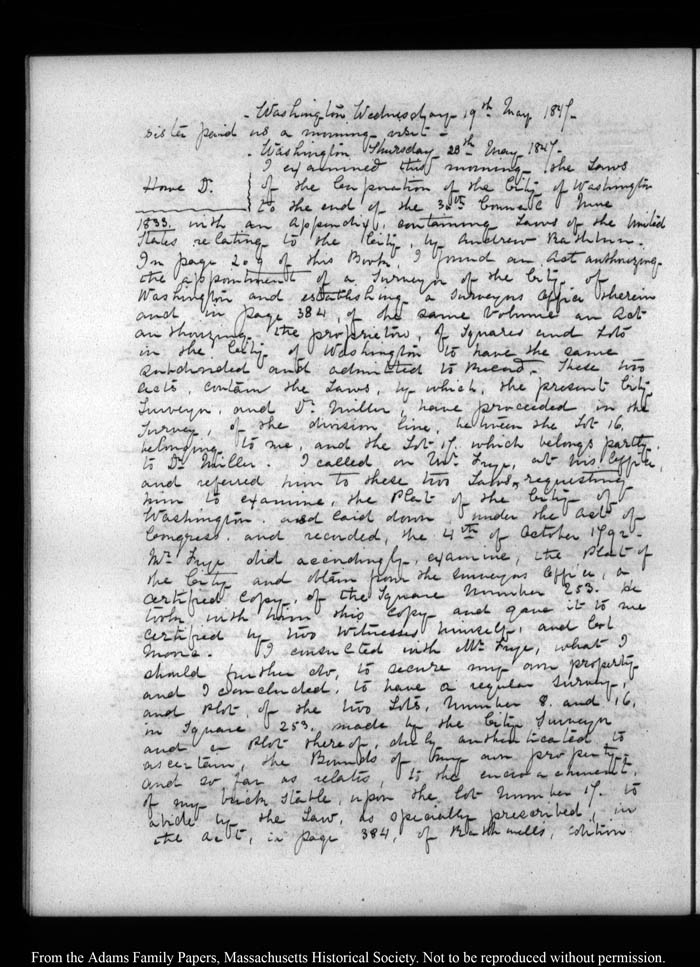 - Washington, Wednesday 19th May 1847.
sister paid us a morning visit -
- Washington Thursday 20th May 1847.
I examined this morning the Laws
Home D. of the Corporation of the City of Washington
to the end of the 30th Council June
1833. with an appendix, containing Laws of the United
States relating to the City, by Andrew Rothwell.
In page 209 of this Book, I found an Act authorizing
the appointment of a Surveyor of the City of
Washington and establishing a Surveyors Office therein
and in page 384, of the same volume an Act
authorizing the proprietors, of Squares and Lots
in the City of Washington to have the same
subdivided and admitted to record. These two
acts, contain the Laws, by which, the present City
Surveyor, and Dr. Miller, have proceeded in the
Survey, of the division line, between the Lot 16,
belonging to me, and the Lot 17. which belongs partly
to Dr. Miller. I called on Mr. Frye, at his office,
and referred him to these two Laws, requesting
him to examine, the Plat of the City of
Washington. as laid down under the Act of
Congress. and recorded, the 4th of October 1792.
Mr. Frye did accordingly, examine, the Plat of
the City and obtain from the Surveyors Office, a
certified Copy, of the Square Number 253. He
took with him this Copy and gave it to me
certified by two witnesses himself, and Col
I consulted with Mr. Frye, what I
should further do, to secure my own property
and I concluded, to have a regular survey,
and Plot, of the two Lots, Number 8. and 16,
in Square 253. made by the City Surveyor
and a Plot thereof, duly authenticated to
ascertain, the Bounds of my own property,
and so far as relates, to the encroachment,
of my brick stable, upon the Lot Number 17. to
abide by the Law, as specially prescribed, in
the act, in page 384, of Rothwells, edition
From the Adams Family Papers, Massachusetts Historical Society. Not to be reproduced without permission.